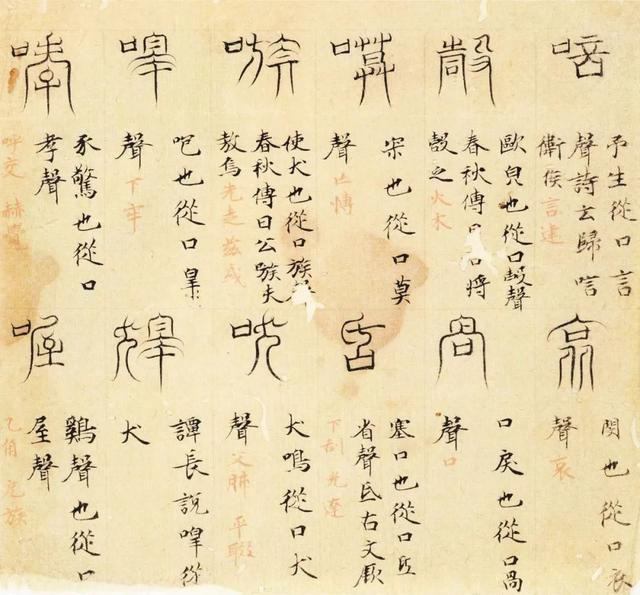 唁
弔生從口言
聲詩云歸唁
衛侯言建
嗀
歐皃也從口㱿聲
春秋傳曰將
嗀之火木
嗼
宋也從口莫
聲亡博
嗾
使犬也從口族聲
春秋傳曰公嗾夫
獒焉先走茲戍
嘷
咆也從口睪
聲下牢
哮
豕驚也從口
孝聲
呼交赫覺
哀
閔也從口衣
聲哀
咼
口戾也從口咼
聲口
𠯑
塞口也從口氐
省聲氐古文厥
下刮
吠
犬鳴從口犬
聲父肺
獋
譚長說嘷從
犬
喔
雞聲也從口
屋聲
乙角